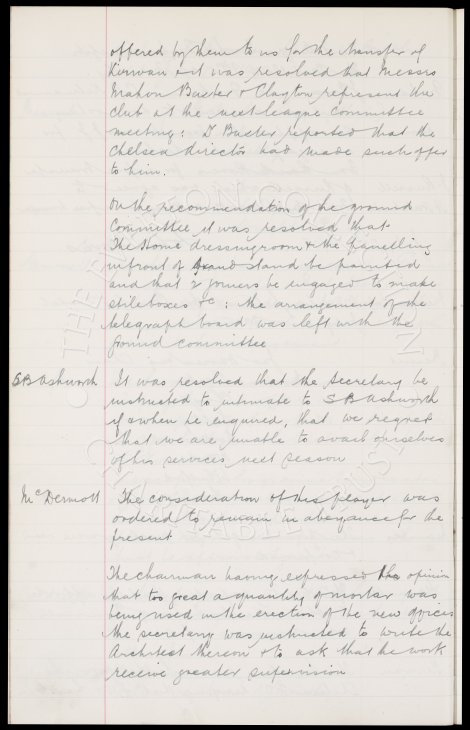 offered by them to us for the transfer of
Kirwan & it was resolved that Messrs
Mahon Baxter & Clayton represent the
club at the next league committee
meeting: D Baxter reported that the
Chelsea director had made such offer
to him.
On the recommendation of the ground
Committee it was resolved that
The Home dressing room & the panelling
in front of Grand stand be painted
and that 2 joiners be engaged to make
stileboxes &c: the arrangement of the
telegraph board was left with the
ground committee
S B Ashworth
It was resolved that the Secretary be
instructed to intimate to S B Ashworth
if & when he enquired, that we regret
that we are unable to avail ourselves
of his services next season
McDermott
The consideration of this player was
ordered to remain in abeyance for the
present
The chairman having expressed the opinion
that too great a quantity of mortar was
being used in the erection of the new offices
the secretary was instructed to write the
Architect thereon & to ask that the work
receive greater supervision